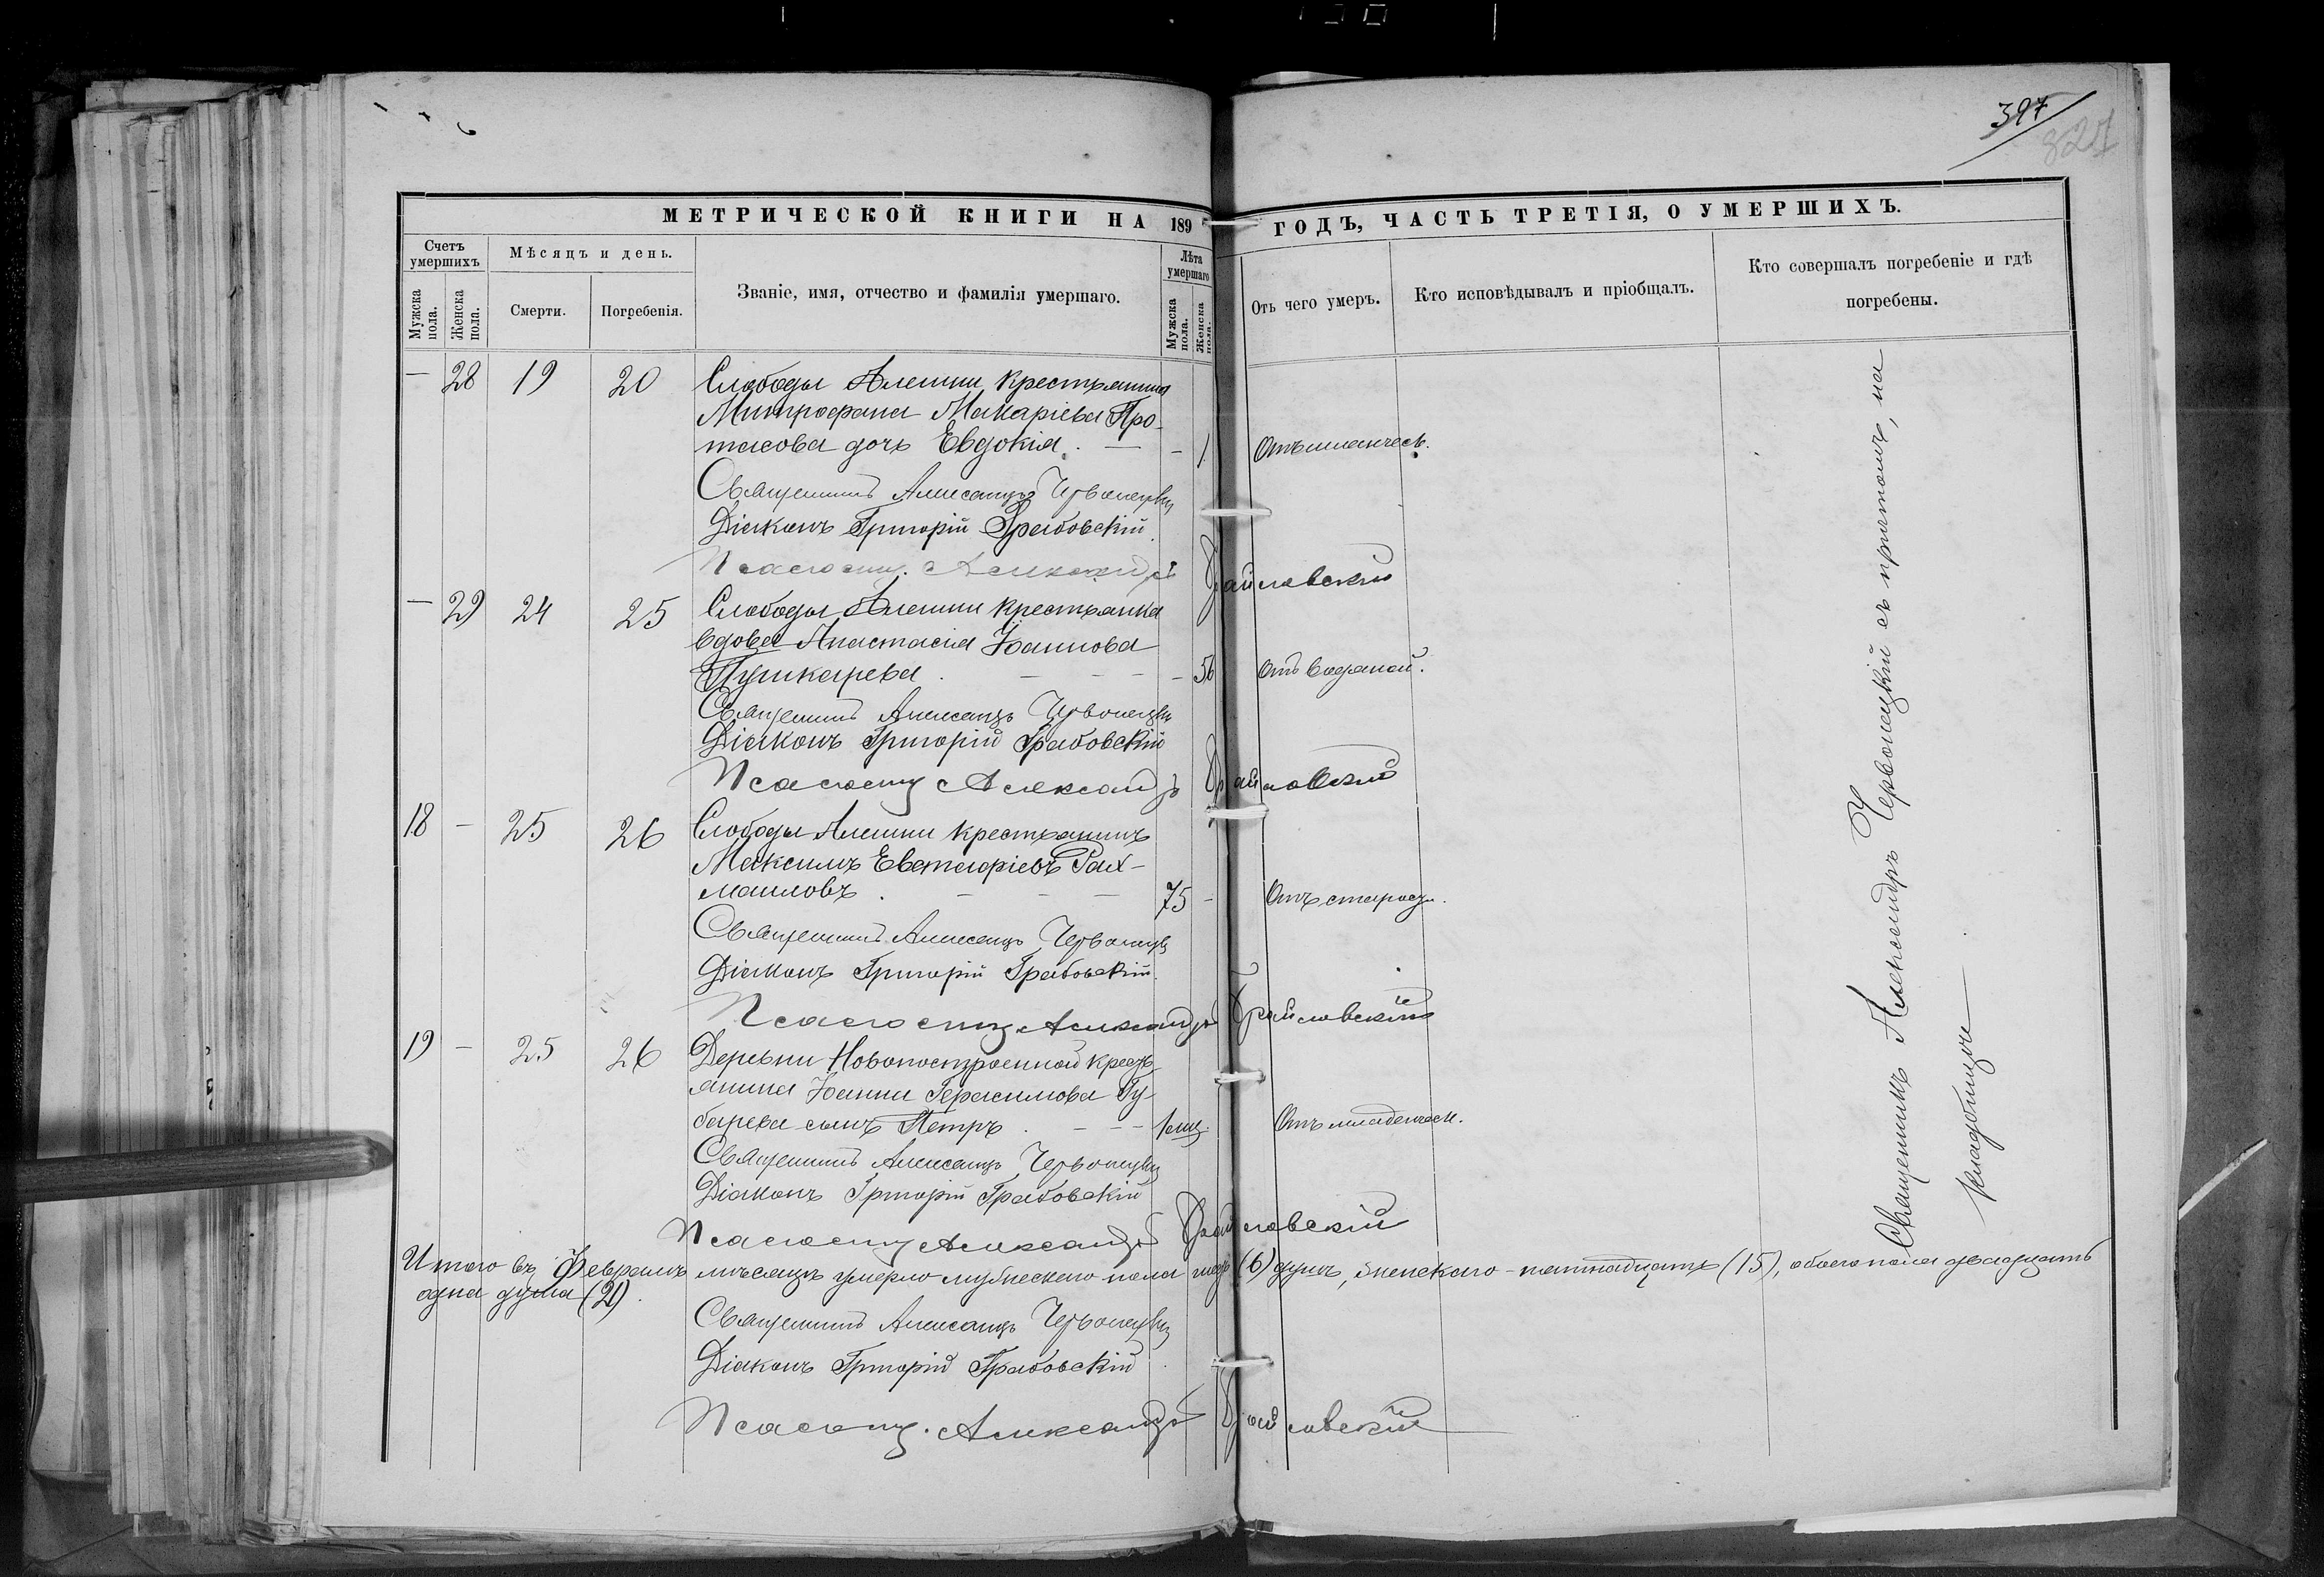 397
327
МЕТРИЧЕСКОЙ КНИГИ НА 189 ГОДЪ, ЧАСТЬ ТРЕТІЯ, О УМЕРШИХЪ.
Счетъ умершихъ
Мѣсяцъ и день.
Званіе, имя, отчество и фамилія умершаго.
Лѣта умершаго
Отъ чего умеръ.
Кто исповѣдывалъ и пріобщалъ.
Кто совершалъ погребеніе и гдѣ погребены.
Мужска пола.
Женска пола.
Смерти.
Погребенія.
Мужска пола.
Женска пола.
— 28 19 20 Слободы Алешни крестьянина
Митрофана Макаріева Про-
тасова дочь Евдокія. — - 1 Отъ младенческ.
Священникъ Александръ Червонецкій
Діаконъ Григорій Грабовскій
Псаломщ. Александръ Браиловскій
— 29 24 25 Слободы Алешни крестьянка
вдова Анастасія Іоаннова
Пушкарева. — — — - 56 Отъ водяной.
Священникъ Александръ Червонецкій
Діаконъ Григорій Грабовскій
Псаломщ Александръ Браиловскій
18 — 25 26 Слободы Алешни крестьянинъ
Максимъ Евстафіевъ Рах-
маиловъ. — — — 75 - Отъ старости.
Священникъ Александръ Червонецкій
Діаконъ Григорій Грабовскій.
Псаломщ. Александръ Браиловскій
19 — 25 26 Деревни Новопостроенной кресть-
янина Іоанна Герасимова Гу-
барева сынъ Петръ. — — — 1 мц. Отъ младенческ.
Священникъ Александръ Червонецкій
Діаконъ Григорій Грабовскій
Псаломщ Александръ Браиловскій
Итого въ Февралѣ мѣсяцѣ умерло мужескаго пола шесть (6) душъ, женскаго - пятнадцать (15), обоего пола двадцать
одна душа (21).
Священникъ Александръ Червонецкій
Діаконъ Григорій Грабовскій
Псаломщ. Александръ Браиловскій
Священникъ Александръ Червонецкій съ причтомъ, на
кладбищѣ